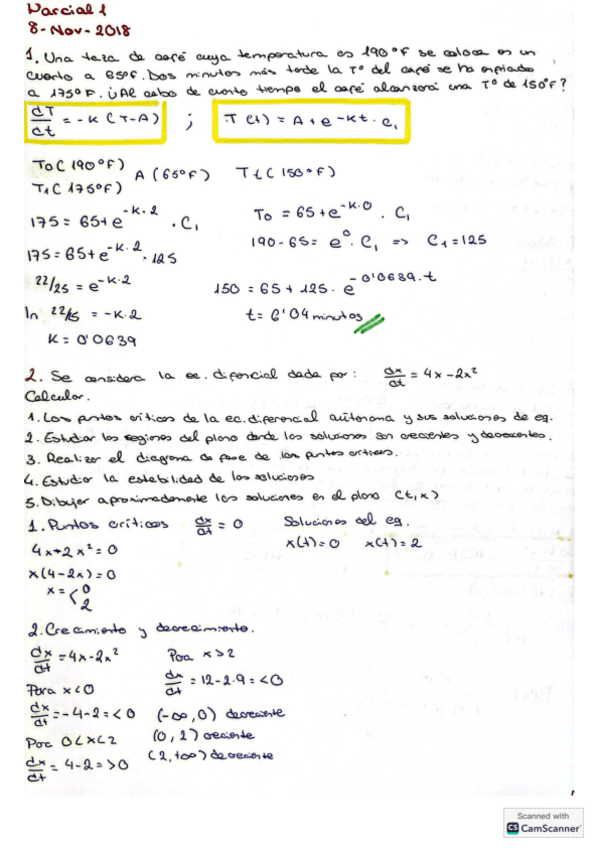 Parcial 1
8-Nov-2018
1. Una taza de café cuya temperatura es 190°F se coloca en un
cuarto a 65°F. Dos minutos más tarde la Tº del café se ha enfriado
a 175°F. ¿Al cabo de cuanto tiempo el café alcanzará una Tº de 150°F?
dT/dt = -K (T-A) ; T(t) = A + e^-Kt · c₁
T0 (190°F) A (65°F) Tt (150°F)
T1 (175°F)
175 = 65 + e^-K·2 · C₁ T0 = 65 + e^-K·0 · C₁
175 = 65 + e^-K·2 · 125 190-65 = e^0 · C₁ => C₁ = 125
22/25 = e^-K·2 150 = 65 + 125 · e^-0'0639·t
ln 22/5 = -K·2 t = 6'04 minutos
K = 0'0639
2. Se considera la ec. diferencial dada por: dx/dt = 4x - 2x²
Calcular.
1. Los puntos críticos de la ec. diferencial autónoma y sus soluciones de eq.
2. Estudiar las regiones del plano donde las soluciones son crecientes y decrecientes.
3. Realizar el diagrama de fase de los puntos críticos.
4. Estudio la estabilidad de las soluciones
5. Dibujar aproximadamente las soluciones en el plano (t,x)
1. Puntos críticos dx/dt = 0 Soluciones del eq.
4x+2x² = 0 x(t)=0 x(t)=2
x(4-2x) = 0
x = < 0 2
2. Crecimiento y decrecimiento.
dx/dt = 4x-2x² Para x>2
Para x<0 dx/dt = 12-2·9 = <0
dx/dt = -4-2 = <0 (-∞,0) decreciente
Para 0<x<2 (0,2) creciente
dx/dt = 4-2 = >0 (2,+∞) decreciente
Scanned with
CS CamScanner